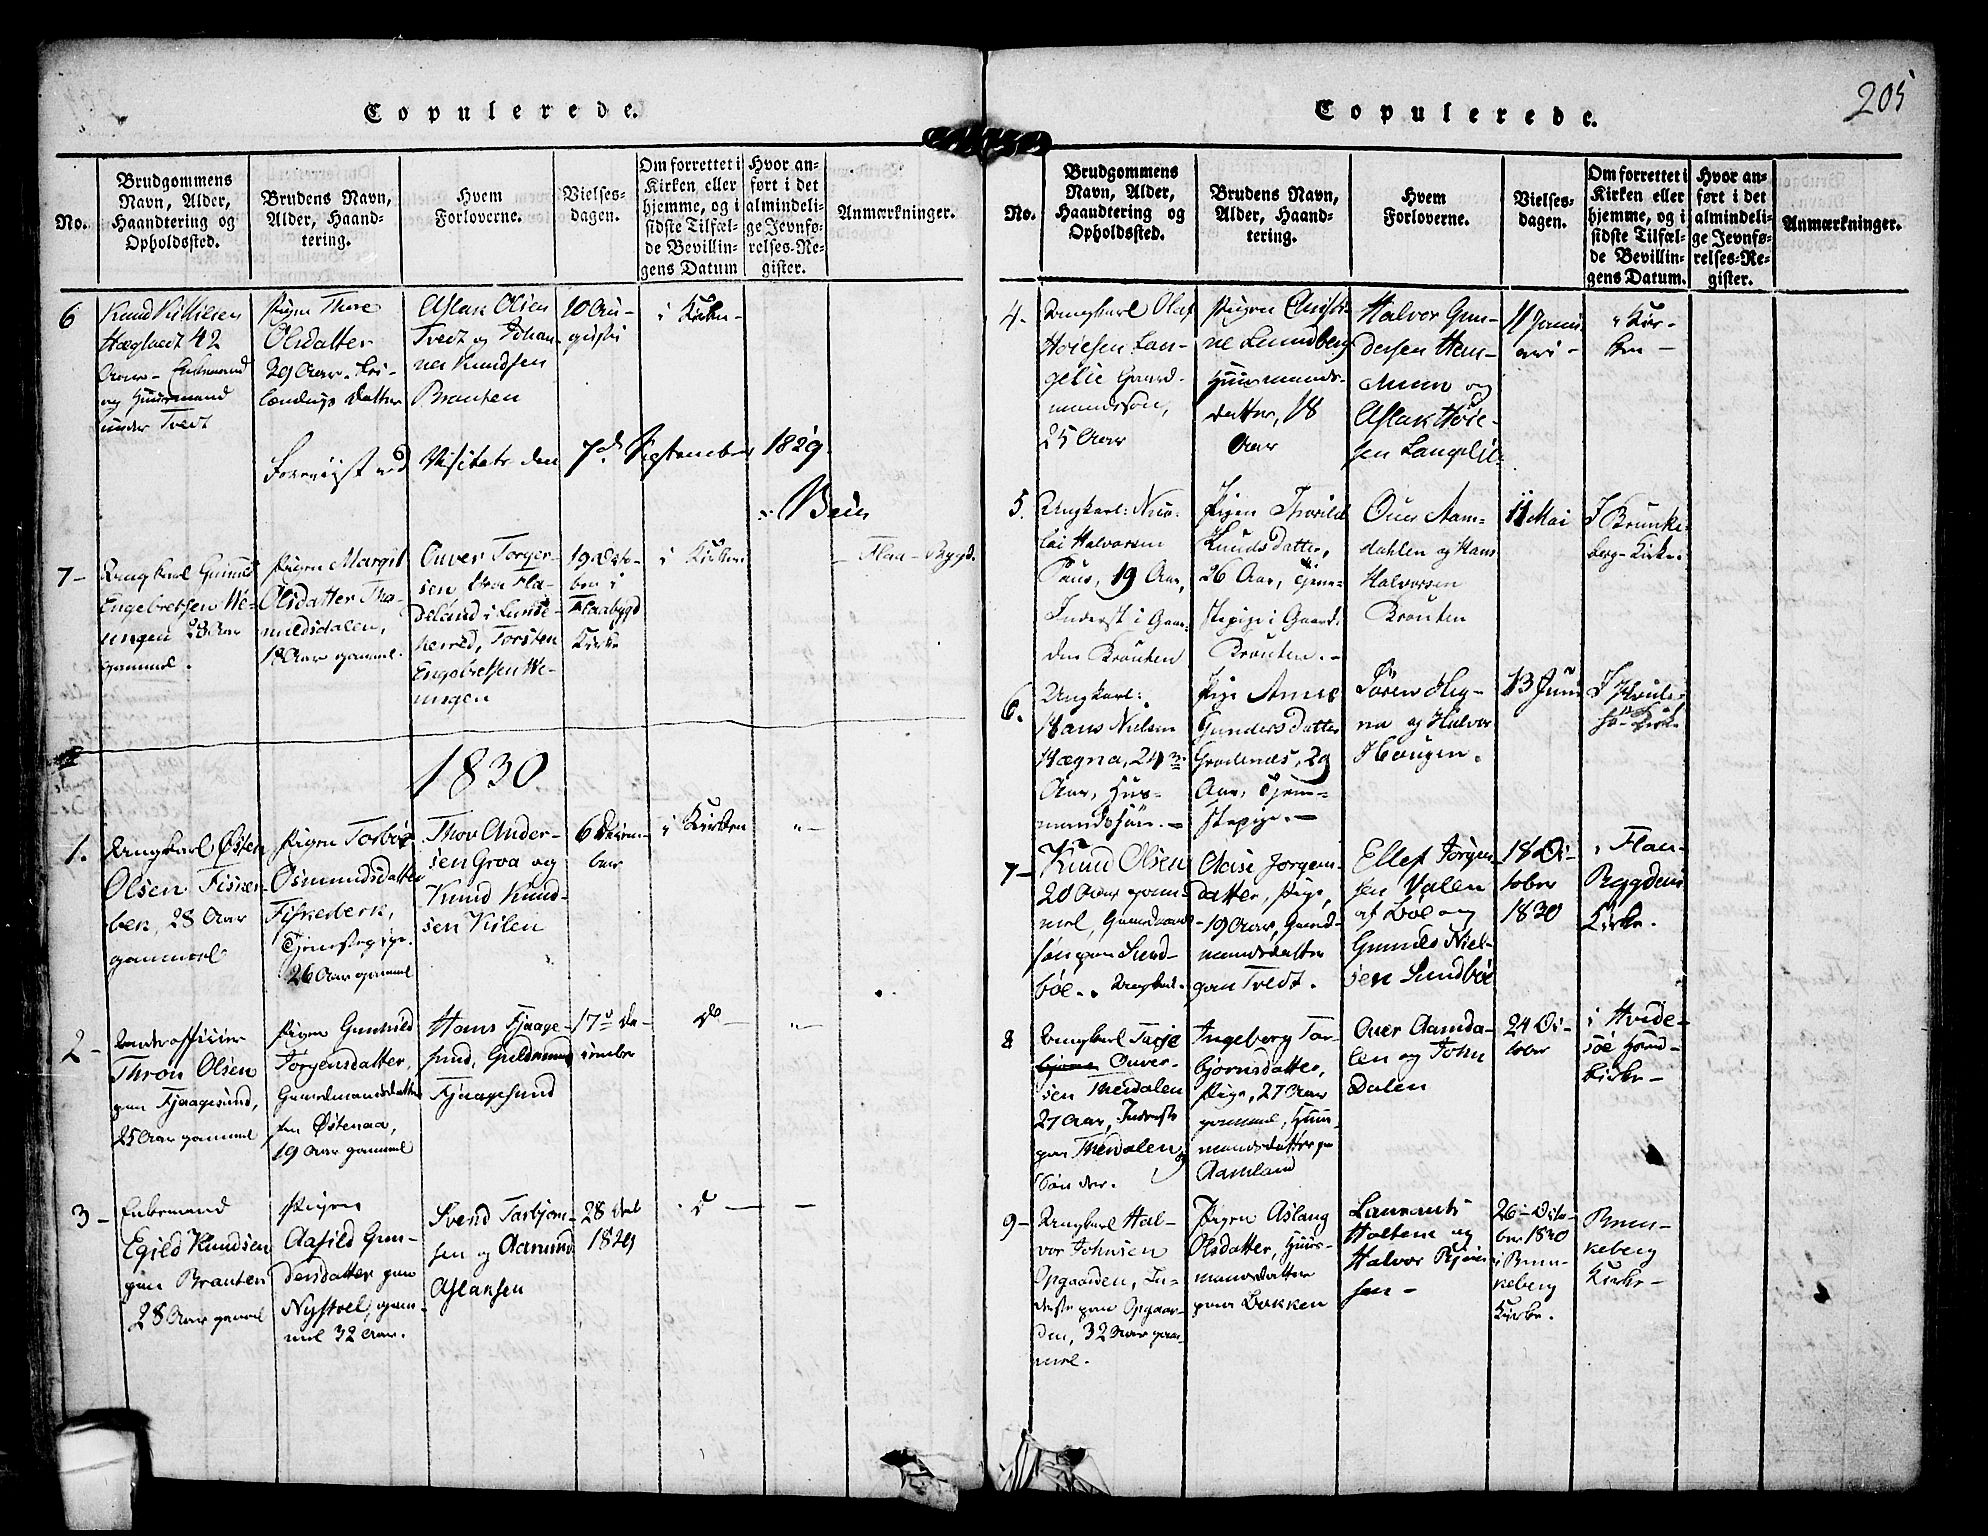 Copulerede.
No.
Brudgommens
Navn, Alder,
Haandtering og
Opholdssted.
Brudens Navn,
Alder, Haand-
tering.
Hvem
Forloverne.
Vielses-
dagen.
Om forrettet i
Kirken eller
hjemme, og i
sidste Tilfæl-
de Bevillin-
gens Datum
Hvor an-
ført i det
almindeli-
ge Jevnfø-
relses-Re-
gister.
Anmærkninger.
6
Knud Kittilsen
42
Aar - Enkemand
og Huusmand
under Tvedt
Pigen Thore
Olsdatter
29 Aar.
datter
Aslak Olsen
Tvedt og Johan-
nes Knudsen
Brauten
10 Au-
gusti
i Kirken
Foreviist ved Visitats den 7de September 1829.
7-
Ungkarl Gunuld
Engebretsen We-
ungen 28 Aar
gammel.
Pigen Margit
Olsdatter
18 Aar gammel.
Ouver Torger-
sen
i
herred, Torsten
Engebretsen We-
ungen
19 Octo-
ber i
Flaabygd
Kirke
i Kirken
Flaa-Bygd.
1830
1.
Ungkarl Østen
Olsen Fisker-
bek, 28 Aar
gammel
Pigen Torbør
Osmundsdatter
Fiskebek,
Tjenestepige.
26 Aar gammel
Thov Ander-
sen Groa og
Knud Knud-
sen Kilen
6 Decem-
ber
i Kirken
2-
Underofficier
Thron Olsen
paa Fjaagesund,
25 Aar gammel
Pigen Gunhild
Torgensdatter,
Gaardmandsdatter
Østenaa,
19 Aar gammel
Hans Fjaage-
sund,
Fjaagesund
17de De-
cember
Do
3-
Enkemand
Egild Knudsen
paa Brauten
28 Aar gammel
Pigen
Aasild Gun-
dersdatter paa
Nystoel, gam-
mel 32 Aar.
Svend Torbjøn-
sen og Aamund
Aslaksen
28 Dec
1829
Do
Copulerede.
205
No.
Brudgommens
Navn, Alder,
Haandtering og
Opholdssted.
Brudens Navn,
Alder, Haand-
tering.
Hvem
Forloverne.
Vielses-
dagen.
Om forrettet i
Kirken eller
hjemme, og i
sidste Tilfæl-
de Bevillin-
gens Datum.
Hvor an-
ført i det
almindeli-
ge Jevnfø-
relses-Re-
gister.
Anmærkninger.
4-
Ungkarl Olaf
Høiesen Lan-
gelie Gaard-
mandssøn,
25 Aar
Pigen Christi-
ne Lundberg
Huusmands-
datter, 18
Aar
Halvor Gun-
dersen
og
Aslak Høie-
sen Langelie
11 Janu-
ari -
i Kir-
ken -
5.
Ungkarl: Nico-
lai Halvorsen
19 Aar,
Inderst i Gaar-
den Brauten
Pigen Thorild
Knudsdatter,
26 Aar, Tjene-
stepige i Gaard.
Brauten. -
Ouer Aam-
dahlen og Hans
Halvorsen
Brauten
11 Mai
I Brunke-
berg-Kirke.
6.
Ungkarl:
Hans Nielsen
Hægna, 24
Aar, Hus-
mandssøn. -
Pige Anne
Gundersdatter
Grodenæs, 29
Aar, Tjene-
stepige. -
Søren Hæg-
na og Halvor
Hougen.
13 Juni
I Hvide-
sø-Kirke
7-
Knud Olsen
20 Aar gam-
mel, Gaardmands-
søn paa Sund-
bøe. Ungkarl.
Jørgens-
datter, Pige,
19 Aar, Gaard-
mandsdatter
paa Tvedt.
Ellef Jørgen-
sen Valen
af Bøe og
Gunuld Niel-
sen Sundbøe
18 Oc-
tober
1830
i Flaa-
Bygdens
Kirke.
8
Ungkarl Tarje
Ouver-
sen Theidalen
27 Aar, Inderste
paa Theidalen
Sønder.
Ingeborg Tor-
bjørnsdatter,
Pige, 27 Aar
gammel, Huus-
mandsdatter paa
Aamland
Ouer Aamda-
len og John
Dalen
24 Oc-
tober
i Hvide-
søe Hoved-
kirke -
9-
Ungkarl Hal-
vor Johnsen
Opgaarden, In-
derste paa Opgaar-
den, 32 Aar gam-
mel.
Pigen Aslaug
Olsdatter, Huus-
mandsdatter
paa Bakken
Laurants
Holten og
Halvor Bjørn-
sen -
26 Octo-
ber 1830
i Brun-
keberg
Kirke.
Brun-
keberg
Kirke -